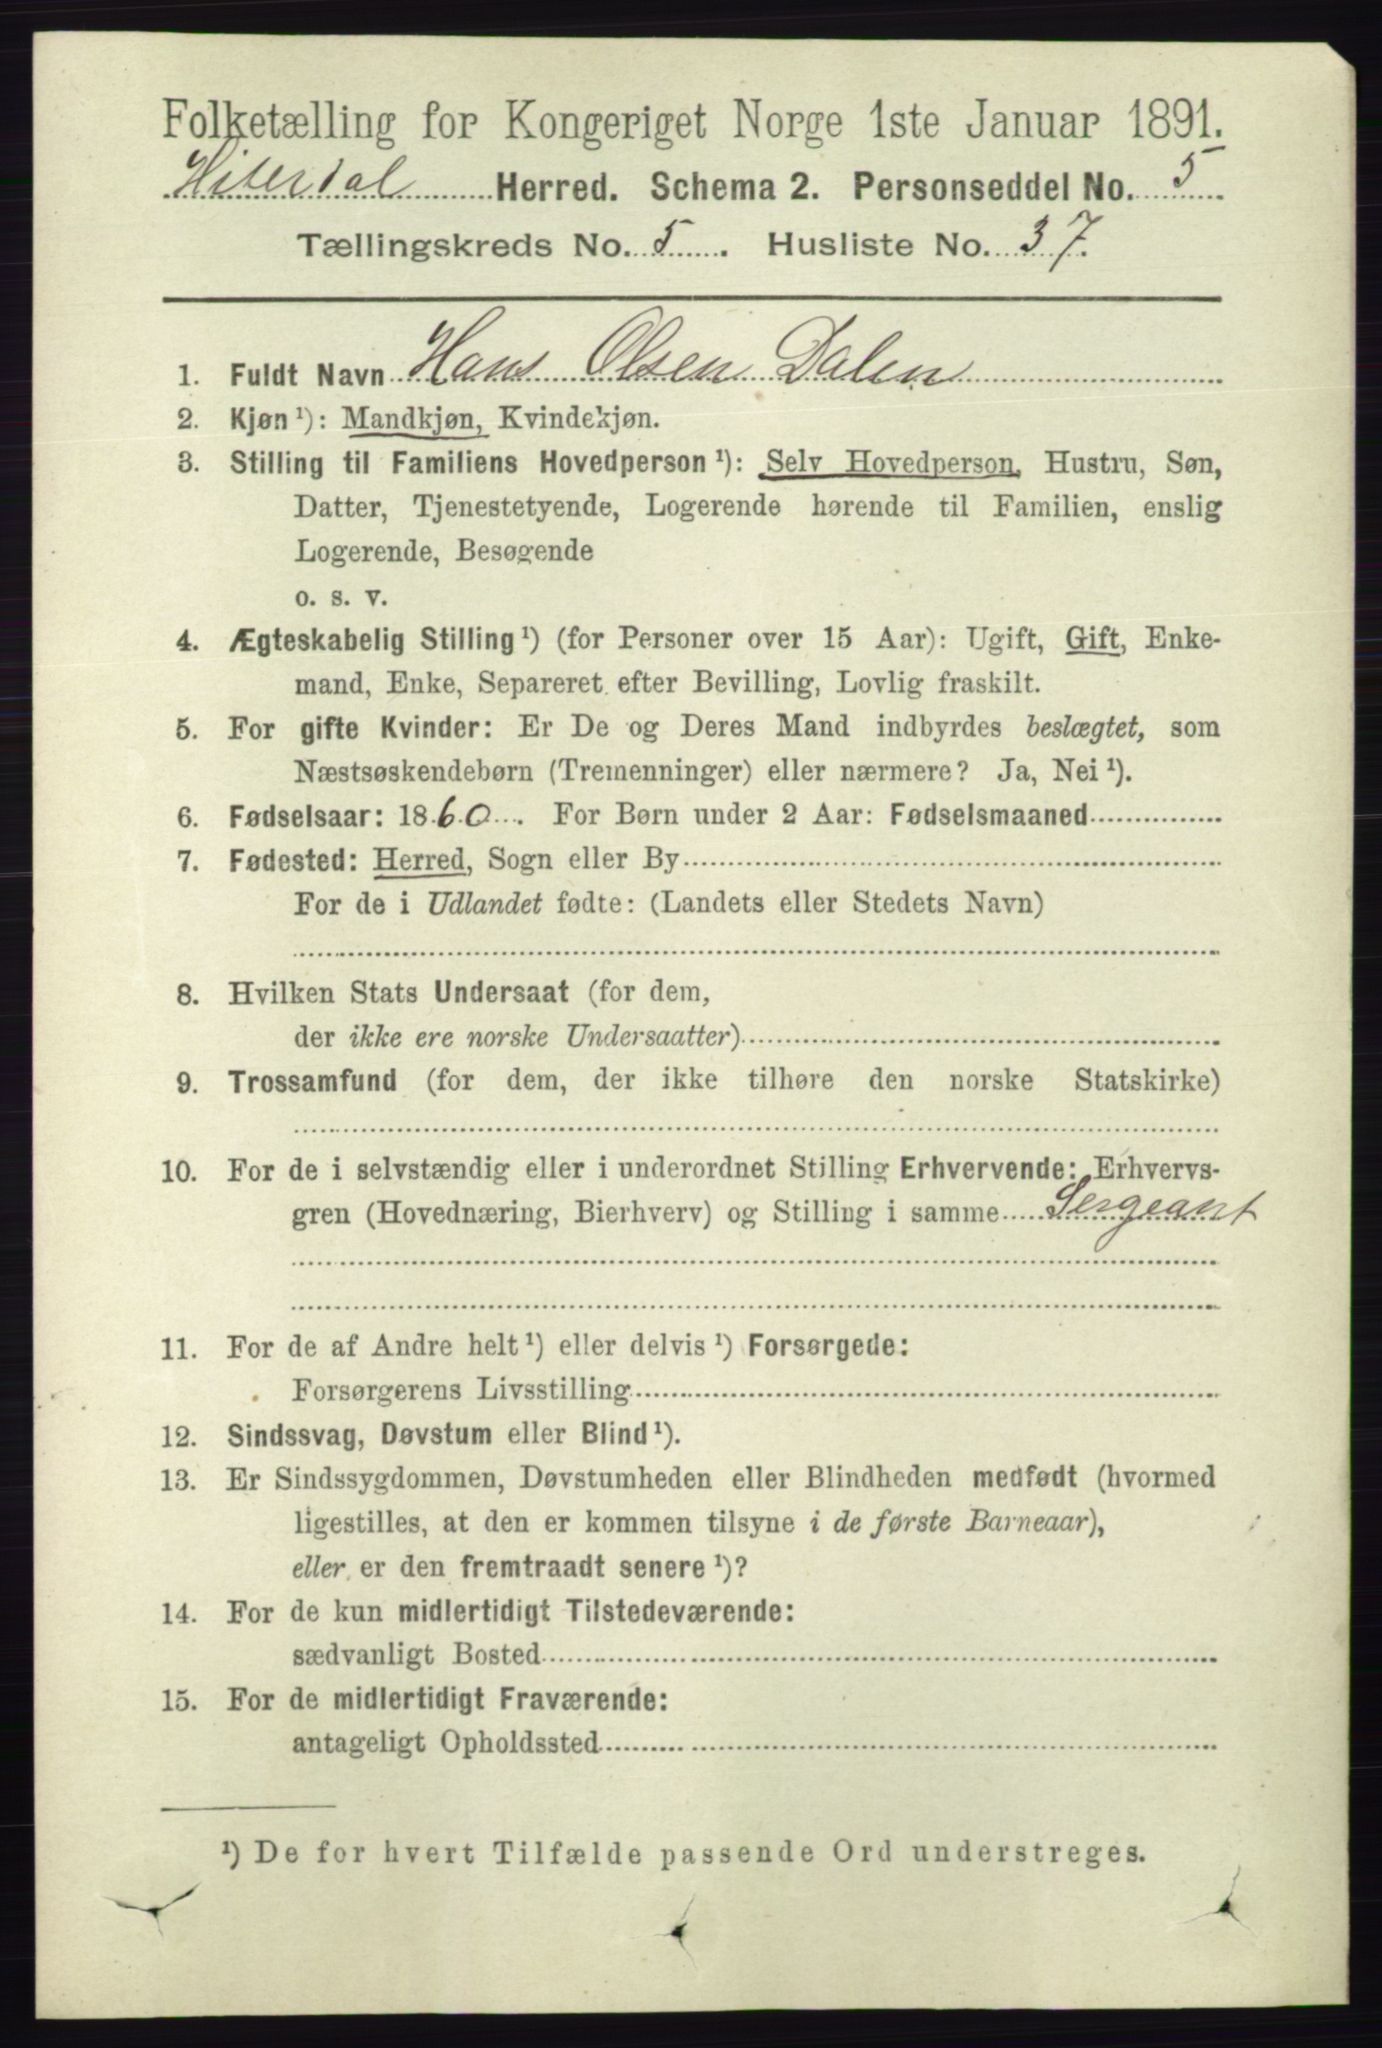 Folketælling for Kongeriget Norge 1ste Januar 1891.
Hiterdal Herred. Schema 2. Personseddel No. 5
Tællingskreds No. 5. Husliste No. 37.
1. Fuldt Navn Hans Olsen Dalen
2. Kjøn¹): Mandkjøn, Kvindekjøn.
3. Stilling til Familiens Hovedperson¹): Selv Hovedperson, Hustru, Søn,
Datter, Tjenestetyende, Logerende hørende til Familien, enslig
Logerende, Besøgende
o. s. v.
4. Ægteskabelig Stilling¹) (for Personer over 15 Aar): Ugift, Gift, Enke-
mand, Enke, Separeret efter Bevilling, Lovlig fraskilt.
5. For gifte Kvinder: Er De og Deres Mand indbyrdes beslægtet, som
Næstsøskendebørn (Tremenninger) eller nærmere? Ja, Nei¹).
6. Fødselsaar: 1860. For Børn under 2 Aar: Fødselsmaaned
7. Fødested: Herred, Sogn eller By
For de i Udlandet fødte: (Landets eller Stedets Navn)
8. Hvilken Stats Undersaat (for dem,
der ikke ere norske Undersaatter)
9. Trossamfund (for dem, der ikke tilhøre den norske Statskirke)
10. For de i selvstændig eller i underordnet Stilling Erhvervende: Erhvervs-
gren (Hovednæring, Bierhverv) og Stilling i samme Sergeant
11. For de af Andre helt¹) eller delvis¹) Forsørgede:
Forsørgerens Livsstilling
12. Sindssvag, Døvstum eller Blind¹).
13. Er Sindssygdommen, Døvstumheden eller Blindheden medfødt (hvormed
ligestilles, at den er kommen tilsyne i de første Barneaar),
eller er den fremtraadt senere¹)?
14. For de kun midlertidigt Tilstedeværende:
sædvanligt Bosted
15. For de midlertidigt Fraværende:
antageligt Opholdssted
¹) De for hvert Tilfælde passende Ord understreges.